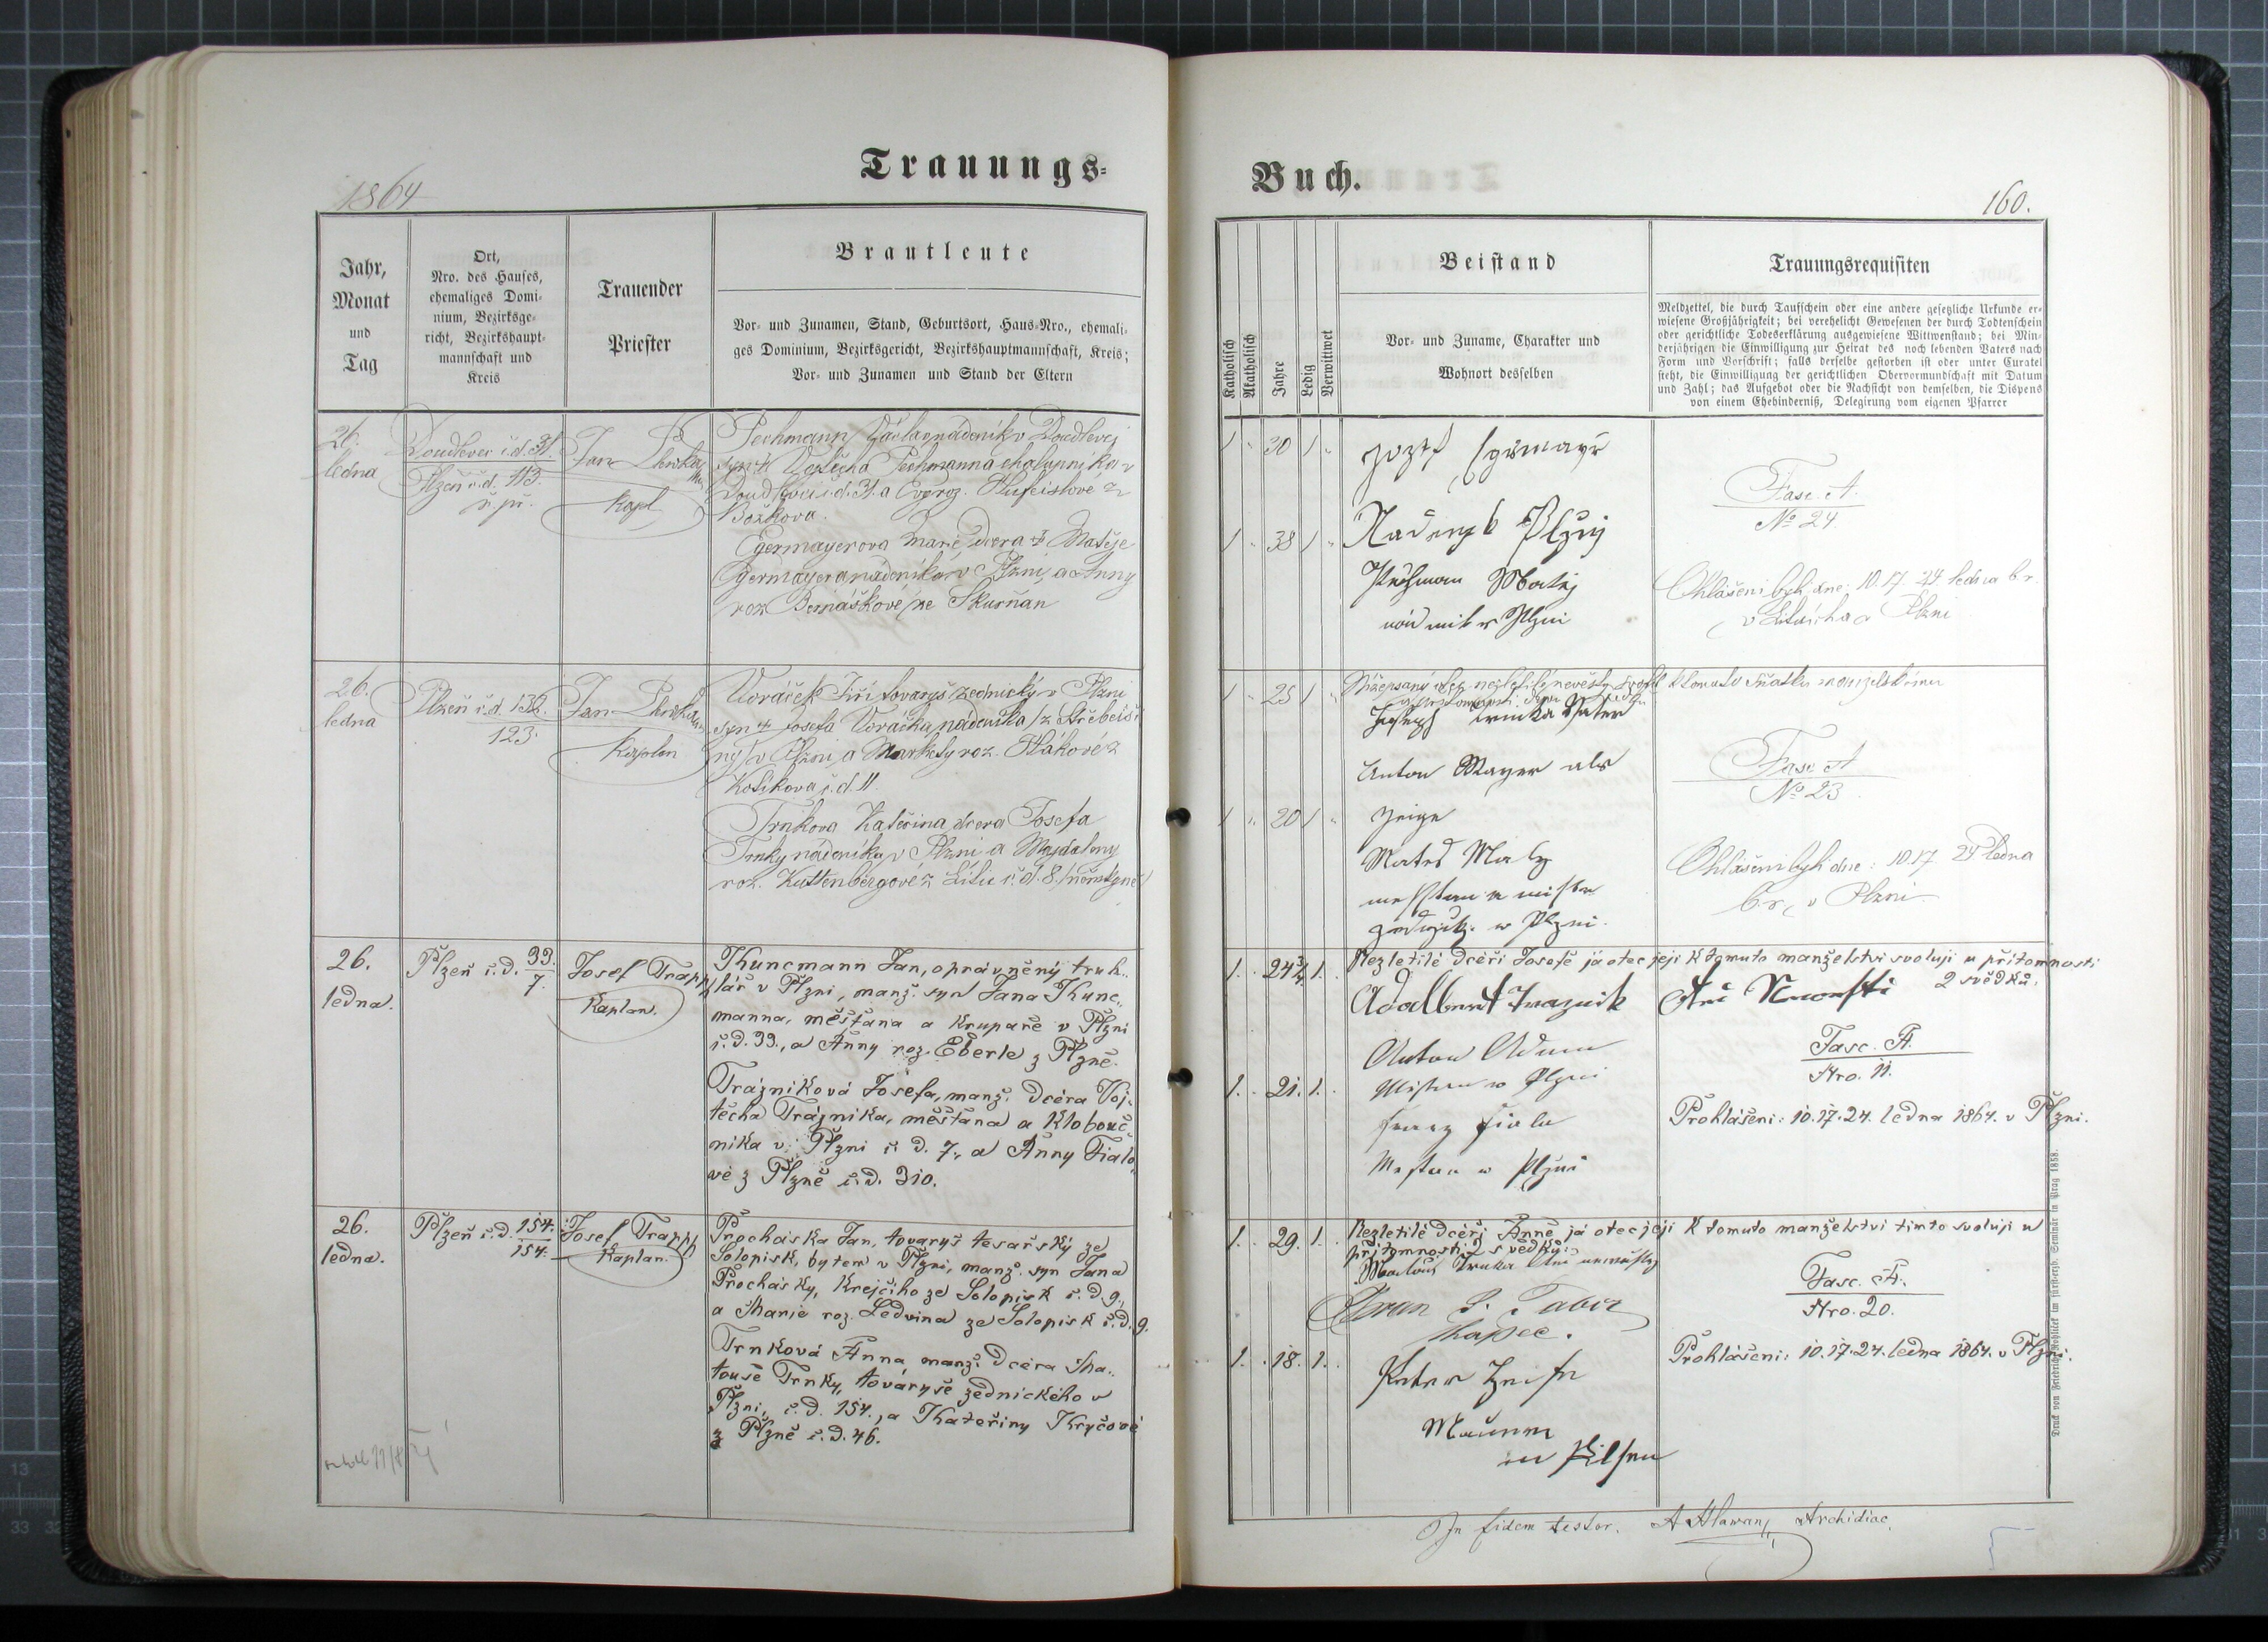 Trauungs-
1864
Jahr,
Monat
und
Tag
Ort,
Nro. des Hauses,
ehemaliges Domi-
nium, Bezirksge-
richt, Bezirkshaupt-
mannschaft und
Kreis
Trauender
Priester
Brautleute
Vor- und Zunamen, Stand, Geburtsort, Haus-Nro., ehemali-
ges Dominium, Bezirksgericht, Bezirkshauptmannschaft, Kreis;
Vor- und Zunamen und Stand der Eltern
26.
ledna
Doudlevec č.d. 31.
Plzeň č.d. 113.
Jan
Kapl
Pechmann Václav nádeník v Doudlevci
syn † Vojtěcha Pechmanna chalupníka v
Doudlevci č.d. 31. a Evy roz.
Božkova.
Egermayerova Marie, dcera † Matěje
Egermayera nádeníka v Plzni, a Anny
roz. Bernáškové ze Skurňan
26.
ledna
Plzeň č.d. 132.
123.
Jan
Kaplan
Voráček Jiří tovaryš zednický v Plzni
syn † Josefa Voráčka, nádeníka
v Plzni, a Markety roz.
č.d. 11.
Trnkova Kateřina dcera Josefa
Trnky nádeníka v Plzni a Majdaleny
roz. Kuttenbergové z Litic č.d. 8.
26.
ledna.
Plzeň č.d. 99.
7.
Josef Trapp
Kaplan.
Kuncmann Jan, oprávněný truh-
lář v Plzni, manž. syn Jana Kunc-
manna, měšťana a krupaře v Plzni
č.d. 99., a Anny roz. Eberle z Plzně.
Trázniková Josefa, manž. dcéra Voj-
těcha Trázníka, měšťana a klobouč-
níka v Plzni č. d. 7., a Anny Fialo-
vé z Plzně č.d. 310.
26.
ledna.
Plzeň č.d. 154.
154.
Josef Trapp
Kaplan.
Procháska Jan, tovaryš tesařský ze
Solopisk, bytem v Plzni, manž. syn Jana
Prochásky, krejčího ze Solopisk č.d. 9.,
a Marie roz. Ledvina ze Solopisk č.d. 9.
Trnková Anna, manž. dcéra Ma-
touše Trnky, továryše zednického v
Plzni, č.d. 154., a Kateřiny Kryčové
z Plzně č.d. 46.
Buch.
160.
Katholisch
Akatholisch
Jahre
Ledig
Verwittwet
Beistand
Vor- und Zuname, Charakter und
Wohnort desselben
Trauungsrequisiten
Meldzettel, die durch Taufschein oder eine andere gesetzliche Urkunde er-
wiesene Großjährigkeit; bei verehelicht Gewesenen der durch Todtenschein
oder gerichtliche Todeserklärung ausgewiesene Wittwenstand; bei Min-
derjährigen die Einwilligung zur Heirat des noch lebenden Vaters nach
Form und Vorschrift; falls derselbe gestorben ist oder unter Curatel
steht, die Einwilligung der gerichtlichen Obervormundschaft mit Datum
und Zahl; das Aufgebot oder die Nachsicht von demselben, die Dispens
von einem Ehehinderniß, Delegirung vom eigenen Pfarrer
1 30 1
Jozef Egrmayr
Nadenyk Plzni
1 38 1
Matěj
w Plzni
Fasc. A.
No 24.
Ohlášeni byli dne: 10. 17. 24 ledna b.r.
v Liticích a Plzni
1 25 1
Nížepsaný otec nezletilé nevěsty svolil k tomuto sňatku manželskému
Joseph Trnka Vater
Anton Mayer als
1 20 1
Zeige
Mates Maly
w Plzni.
Fasc. A
No 23
Ohlášeni byli dne: 10 17 24 ledna
b.r. v Plzni
1. 24¾ 1.
Nezletilé dcéři Josefě já otec její k tomuto manželství svoluji u přítomnosti
2 svědků.
Adalbert Traznik
Anton Adam
1. 21. 1.
w Plzni
Franz Fiala
w Plzni
Fasc. A.
Nro. 11.
Prohlášeni: 10. 17. 24. ledna 1864. v Plzni.
1. 29. 1.
Nezletilé dcéři Anně já otec její k tomuto manželství tímto svoluji u
přítomnosti 2 svědků:
Matouš Trnka
1. 18. 1.
Maurer
in Pilsen
Fasc. A.
Nro. 20.
Prohlášeni: 10. 17. 24. ledna 1864. v Plzni.
In fidem testor. A Hlawan Archidiac.
Druck von Friedrich Rohliček im fürst-erzb. Seminär in Prag 1858.